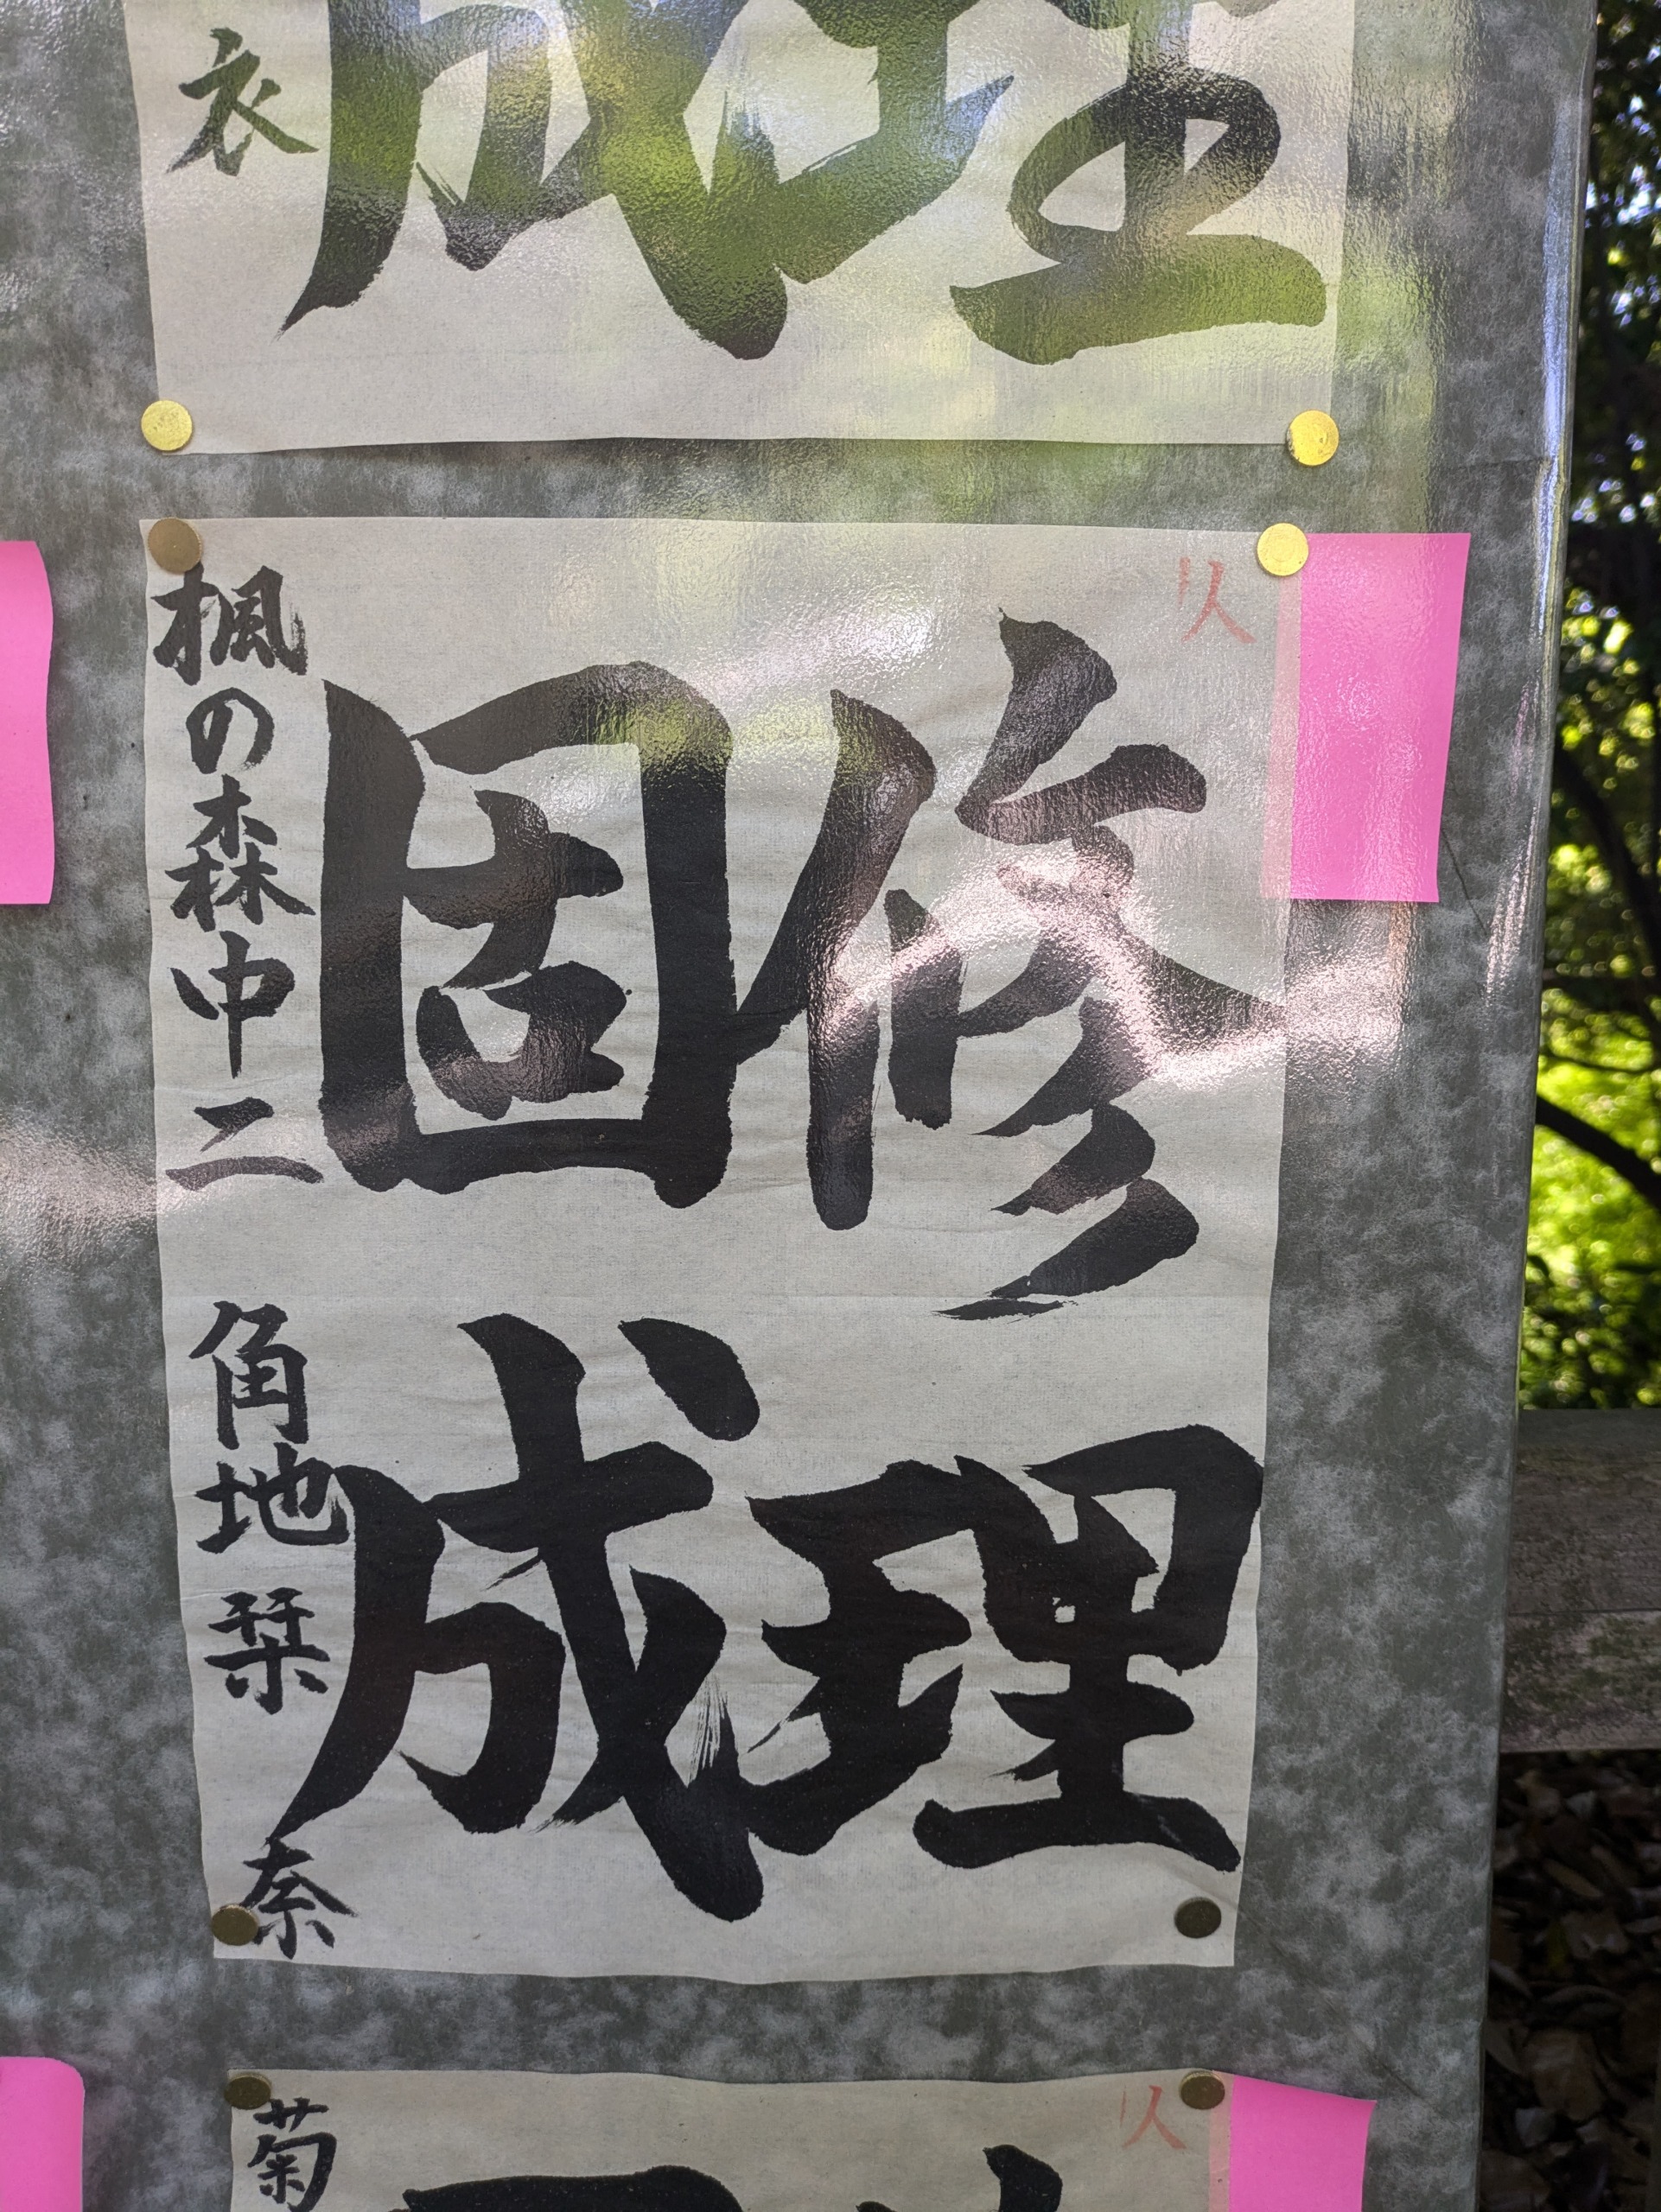 理
成
衣
修理
固成
楓の森中二 角地 栞奈
菊